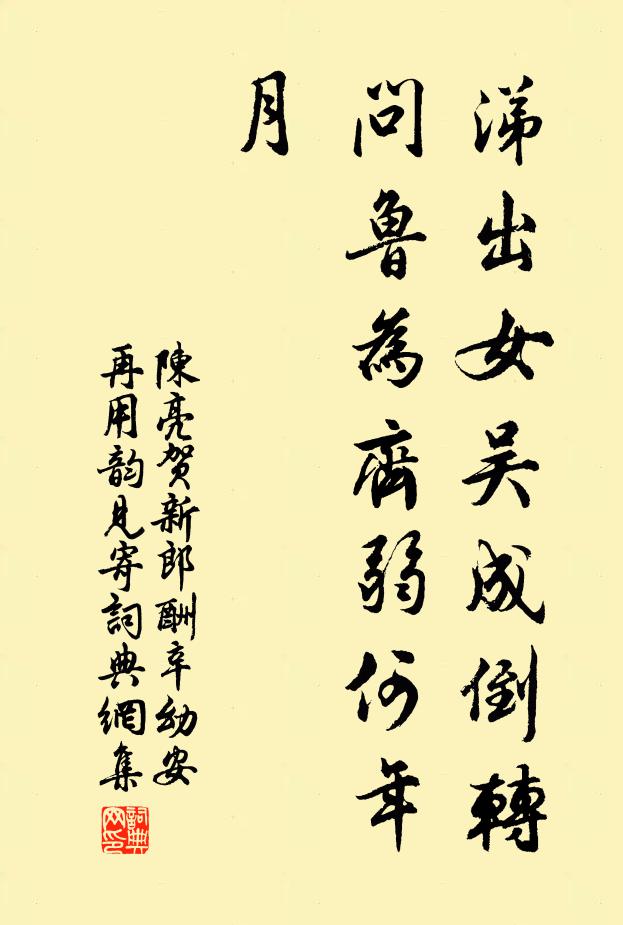 涕出女吴成倒轉
問魯為齊弱何年
月
陳亮贺新郎酬辛幼安
再用韵見寄詞典網集
詞典
网印